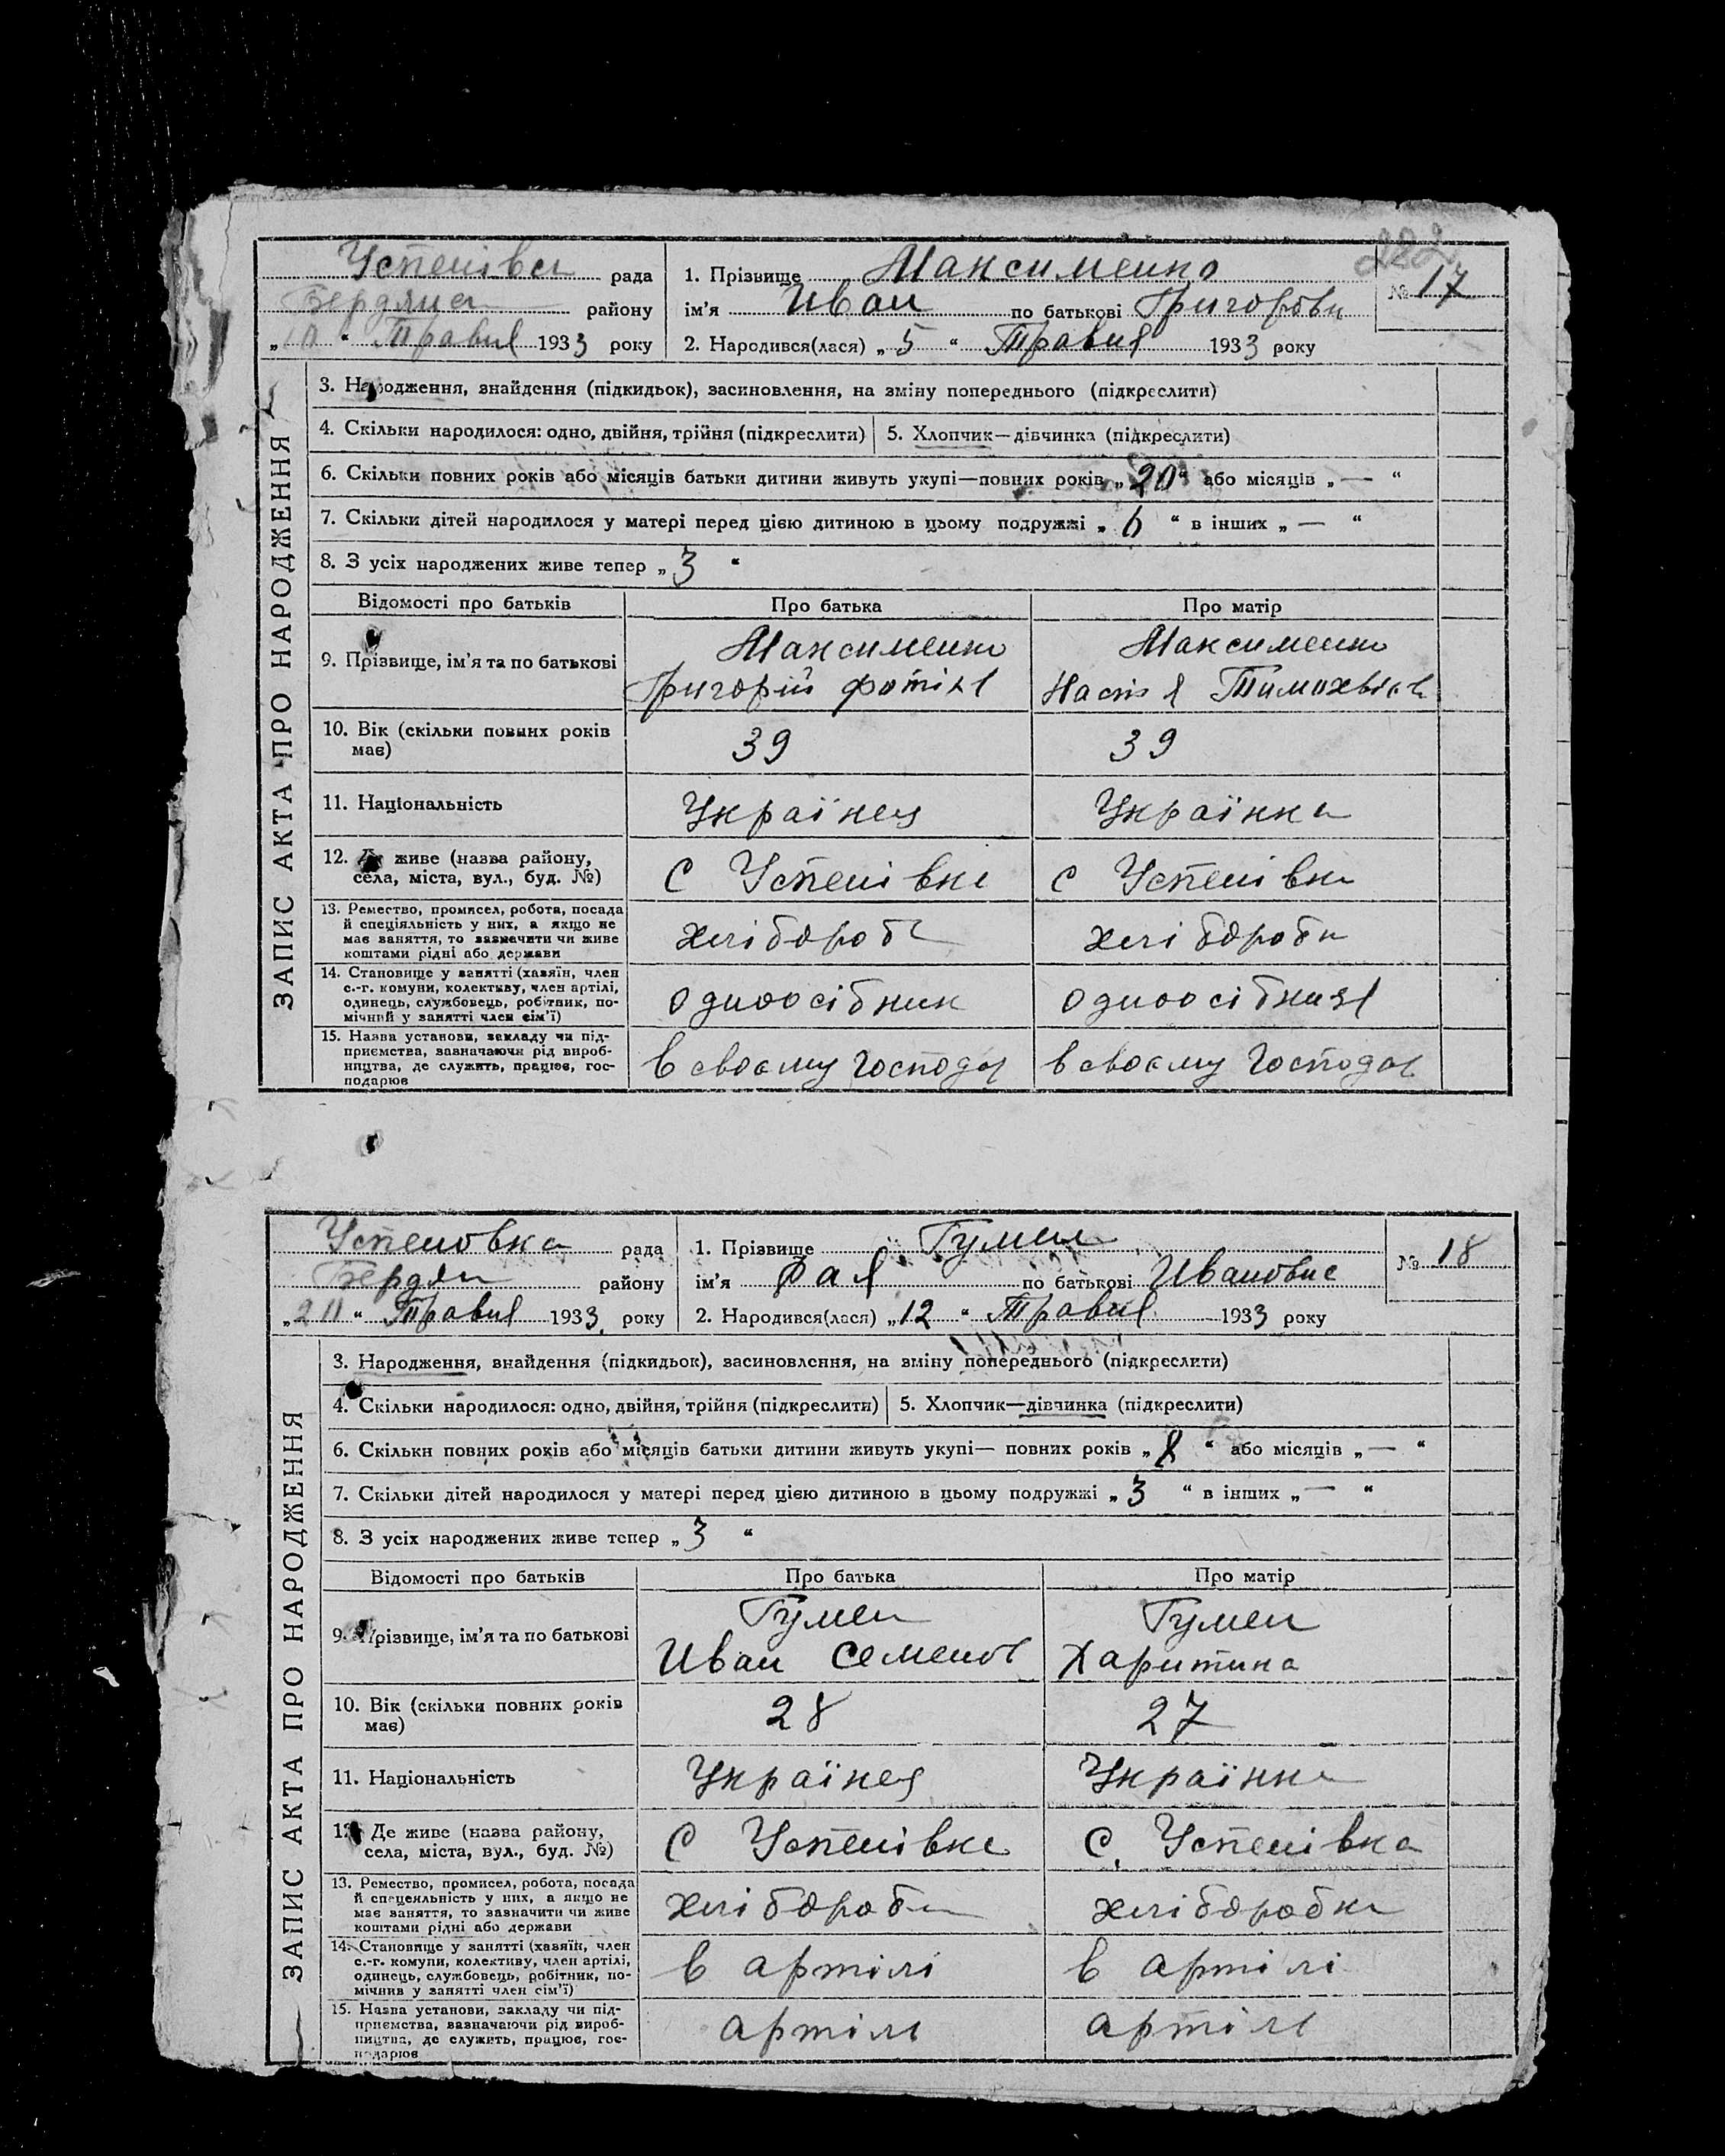 Успенівси рада
1. Прізвище Максименко
№ 17
Бердянс району
ім'я Иван по батькові Григорови
„10“ Травня 1933 року
2. Народився(лася) „5“ Травня 1933 року
ЗАПИС АКТА ПРО НАРОДЖЕННЯ
3. Народження, знайдення (підкидьок), засиновлення, на зміну попереднього (підкреслити)
4. Скільки народилося: одно, двійня, трійня (підкреслити) 5. Хлопчик—дівчинка (підкреслити)
6. Скільки повних років або місяців батьки дитини живуть укупі—повних років „20“ або місяців „—“
7. Скільки дітей народилося у матері перед цією дитиною в цьому подружжі „6“ в інших „—“
8. З усіх народжених живе тепер „3“
Відомості про батьків Про батька Про матір
9. Прізвище, ім'я та по батькові
Максименко Максименко
Григорій Фотіев Настя Тимохвієв
10. Вік (скільки повних років
має)
39 39
11. Національність Українец Українка
12. Де живе (назва району,
села, міста, вул., буд. №)
С Успенівка С Успенівка
13. Ремество, промисел, робота, посада
й спеціяльність у них, а якщо не
має заняття, то зазначити чи живе
коштами рідні або держави
хлібороб хлібороби
14. Становище у занятті (хазяїн, член
с.-г. комуни, колективу, член артілі,
одинець, службовець, робітник, по-
мічний у занятті член сім'ї)
одноосібник одноосібниця
15. Назва установи, закладу чи під-
приємства, зазначаючи рід вироб-
ництва, де служить, працює, гос-
подарює
в своєму господар в своєму господар
Успеновка рада
1. Прізвище Гумен
№ 18
Бердян району
ім'я Фая по батькові Ивановне
„20“ Травня 1933 року
2. Народився(лася) „12“ Травня 1933 року
ЗАПИС АКТА ПРО НАРОДЖЕННЯ
3. Народження, знайдення (підкидьок), засиновлення, на зміну попереднього (підкреслити)
4. Скільки народилося: одно, двійня, трійня (підкреслити) 5. Хлопчик—дівчинка (підкреслити)
6. Скільки повних років або місяців батьки дитини живуть укупі— повних років „8“ або місяців „—“
7. Скільки дітей народилося у матері перед цією дитиною в цьому подружжі „3“ в інших „—“
8. З усіх народжених живе тепер „3“
Відомості про батьків Про батька Про матір
9. Прізвище, ім'я та по батькові
Гумен Гумен
Иван Семенов Харитина
10. Вік (скільки повних років
має)
28 27
11. Національність Українец Українка
12. Де живе (назва району,
села, міста, вул., буд. №)
С Успенівка С. Успенівка
13. Ремество, промисел, робота, посада
й спецеяльність у них, а якщо не
має заняття, то зазначити чи живе
коштами рідні або держави
хлібороб хліборобка
14. Становище у занятті (хазяїн, член
с.-г. комуни, колективу, член артілі,
одинець, службовець, робітник, по-
мічнив у занятті член сім'ї)
в артілі в артілі
15. Назва установи, закладу чи під-
приємства, зазначаючи рід вироб-
ництва, де служить, працює, гос-
подарює
артіль артіль